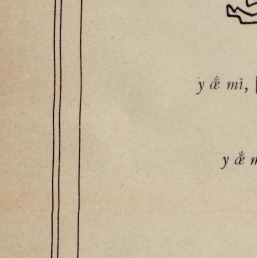 y ǽ mĭ,
y ǽ m